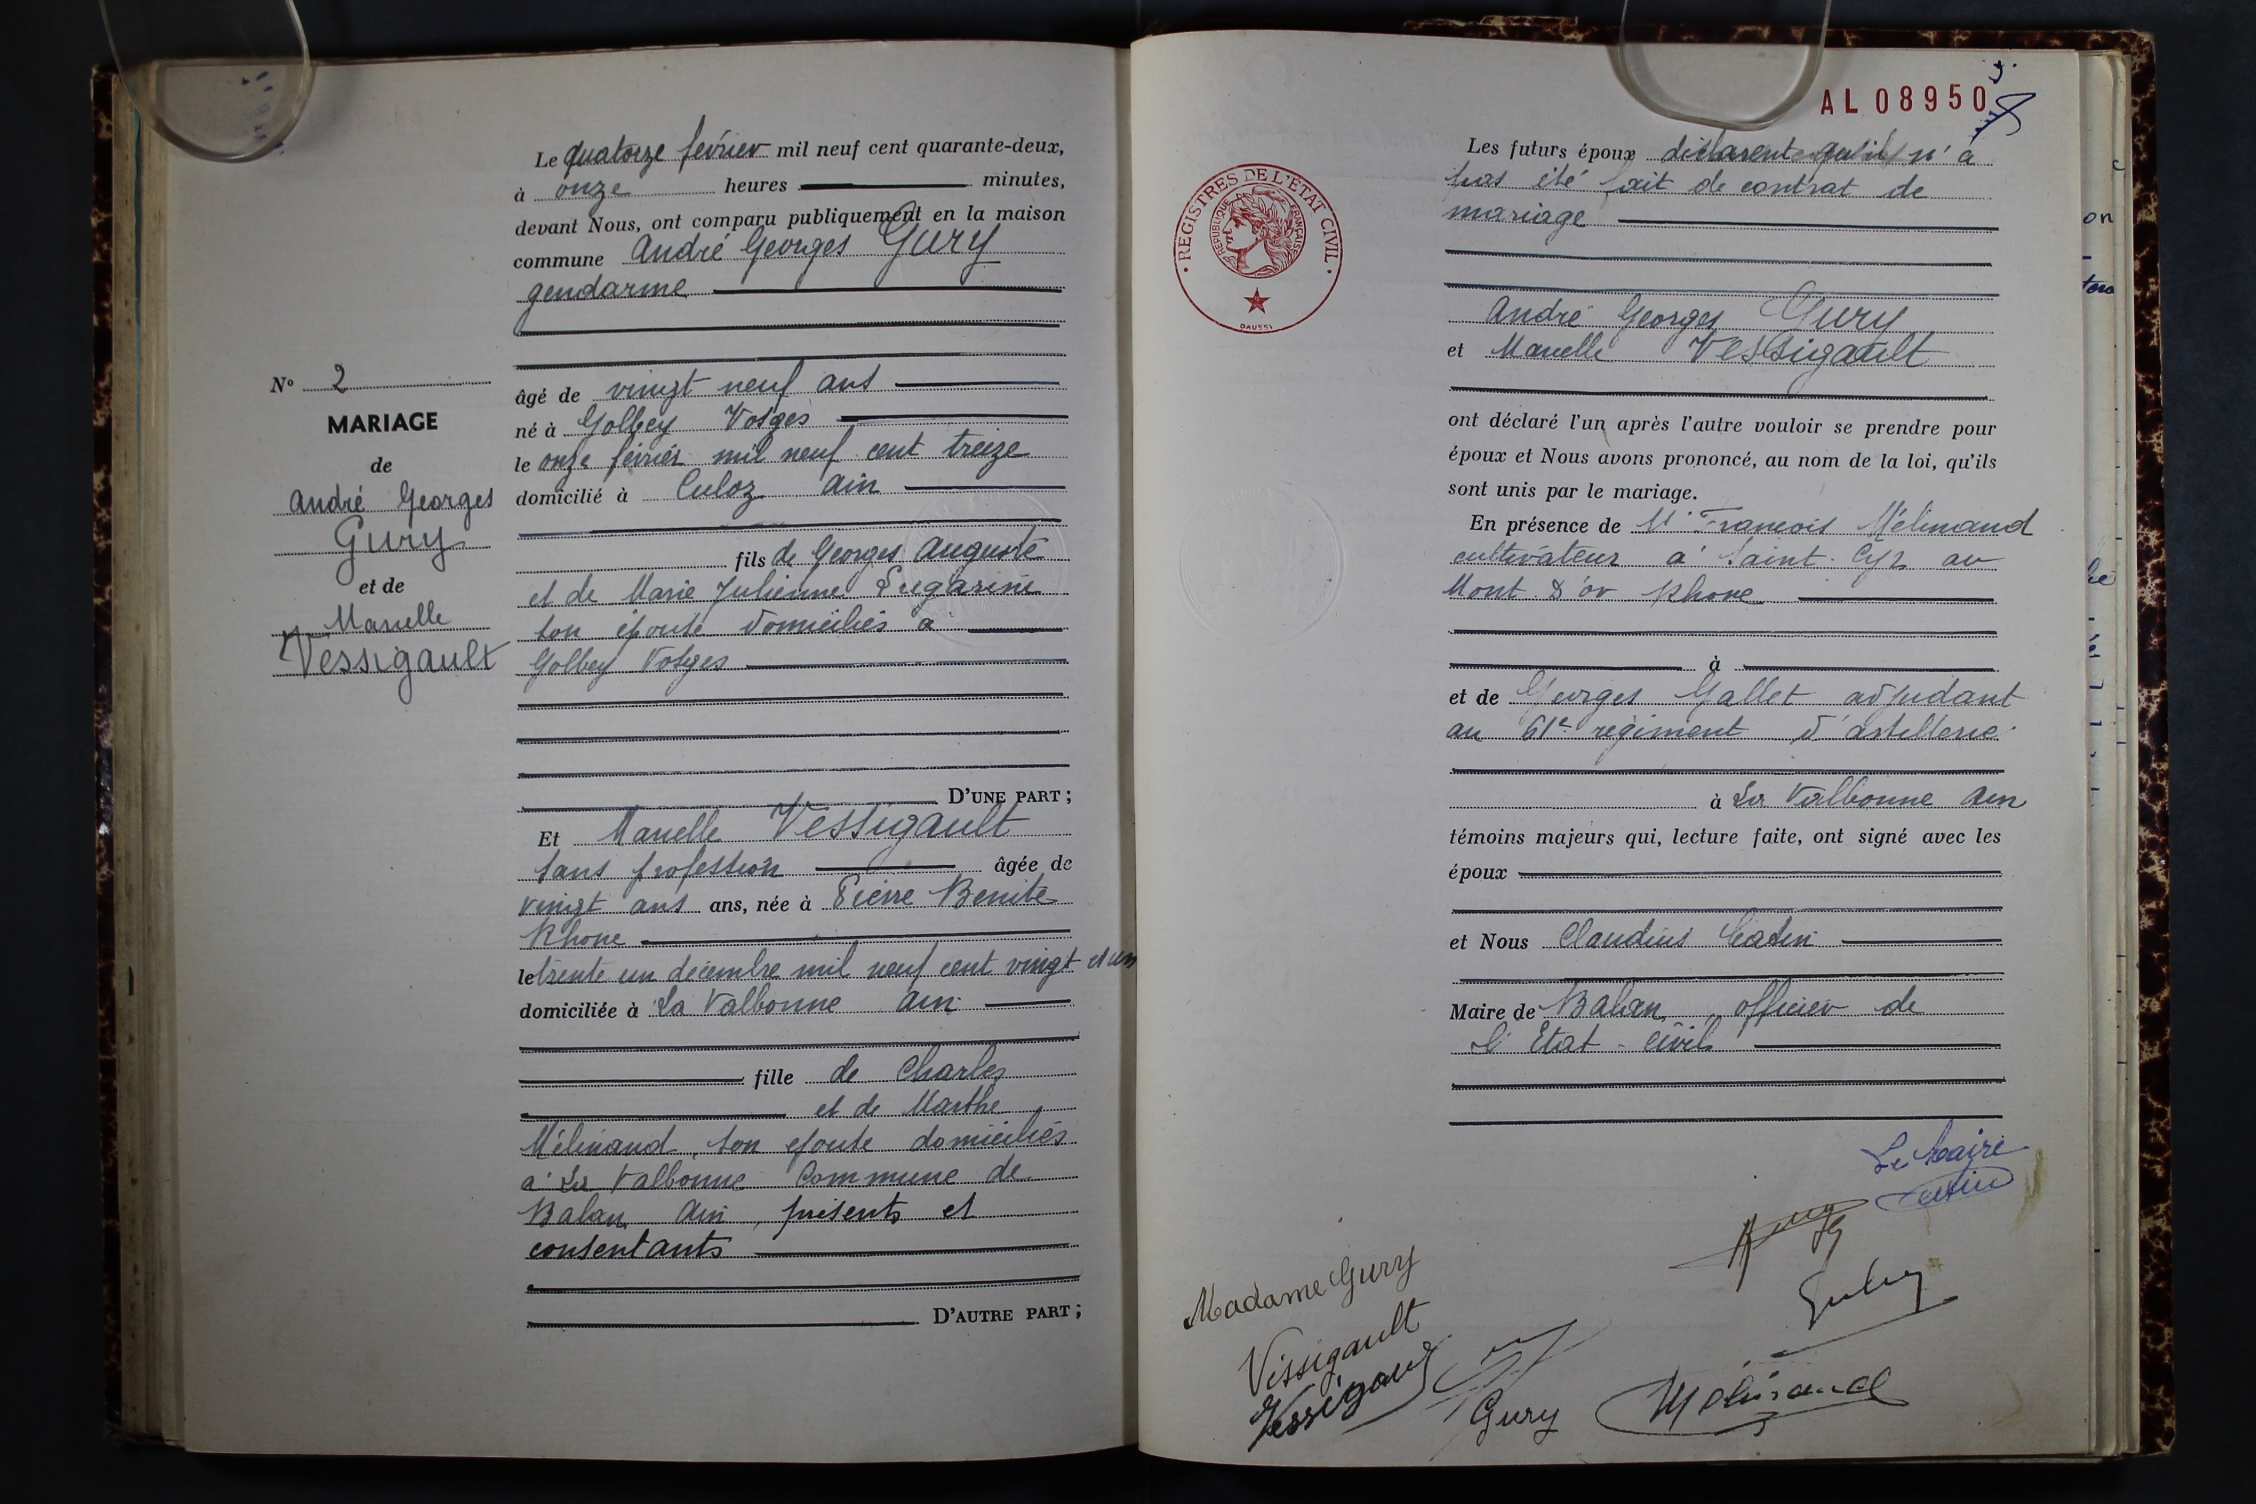 Le quatorze février mil neuf cent quarante-deux,
à onze heures minutes,
devant Nous, ont comparu publiquement en la maison
commune André Georges Gury
gendarme
âgé de vingt neuf ans
né à Golbey Vosges
le onze février mil neuf cent treize
domicilié à Culoz Ain
fils de Georges Auguste
et de Marie Julienne
son épouse domiciliés à
Golbey Vosges
D'UNE PART ;
N° 2
MARIAGE
de
André Georges
Gury
et de
Marcelle
Vessigault
Et Marcelle Vessigault
sans profession âgée de
vingt ans ans, née à Pierre Benite
Rhone
le trente un décembre mil neuf cent vingt et un
domiciliée à La Valbonne Ain
fille de Charles
et de Marthe
Mélinand, son epouse domiciliés
à La Valbonne Commune de
Balan Ain, présents et
consentants
D'AUTRE PART ;
AL 08950
REGISTRES DE L'ÉTAT CIVIL
RÉPUBLIQUE FRANÇAISE
DAUSSI
Les futurs époux déclarent qu'il n'a
pas été fait de contrat de
mariage
André Georges Gury
et Marcelle Vessigault
ont déclaré l'un après l'autre vouloir se prendre pour
époux et Nous avons prononcé, au nom de la loi, qu'ils
sont unis par le mariage.
En présence de Mr François Mélinand
cultivateur à Saint Cyr au
Mont d'or Rhone
à
et de Georges Gallet adjudant
au 61e régiment d'artillerie
à La Valbonne Ain
témoins majeurs qui, lecture faite, ont signé avec les
époux
et Nous Claudius
Maire de Balan, officier de
l'Etat-civil
Le Maire
Madame Gury
Vissigault
Vessigault
Gury
Mélinand